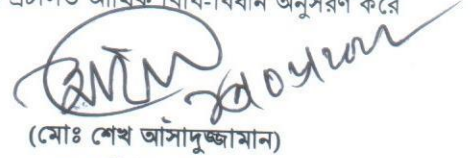 প্রচলিত আর্থিক বিধি-বিধান অনুসরণ করে
(মোঃ শেখ আসাদুজ্জামান)